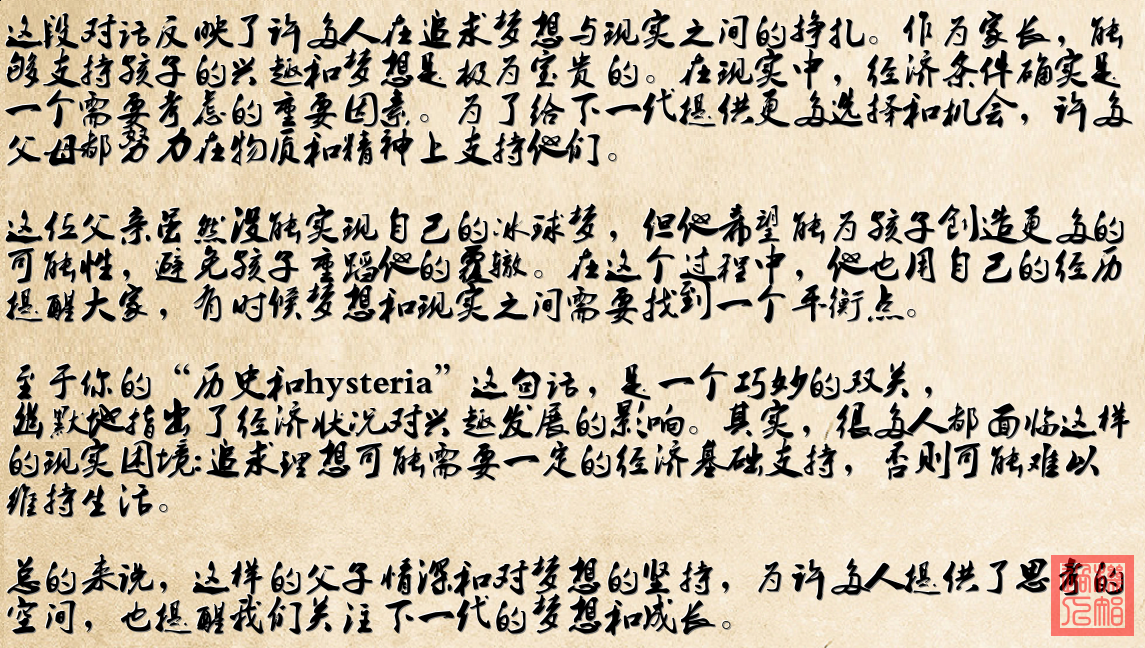 这段对话反映了许多人在追求梦想与现实之间的挣扎。作为家长，能
够支持孩子的兴趣和梦想是极为宝贵的。在现实中，经济条件确实是
一个需要考虑的重要因素。为了给下一代提供更多选择和机会，许多
父母都努力在物质和精神上支持他们。
这位父亲虽然没能实现自己的冰球梦，但他希望能为孩子创造更多的
可能性，避免孩子重蹈他的覆辙。在这个过程中，他也用自己的经历
提醒大家，有时候梦想和现实之间需要找到一个平衡点。
至于你的“历史和hysteria”这句话，是一个巧妙的双关，
幽默地指出了经济状况对兴趣发展的影响。其实，很多人都面临这样
的现实困境:追求理想可能需要一定的经济基础支持，否则可能难以
维持生活。
总的来说，这样的父子情深和对梦想的坚持，为许多人提供了思考的
空间，也提醒我们关注下一代的梦想和成长。